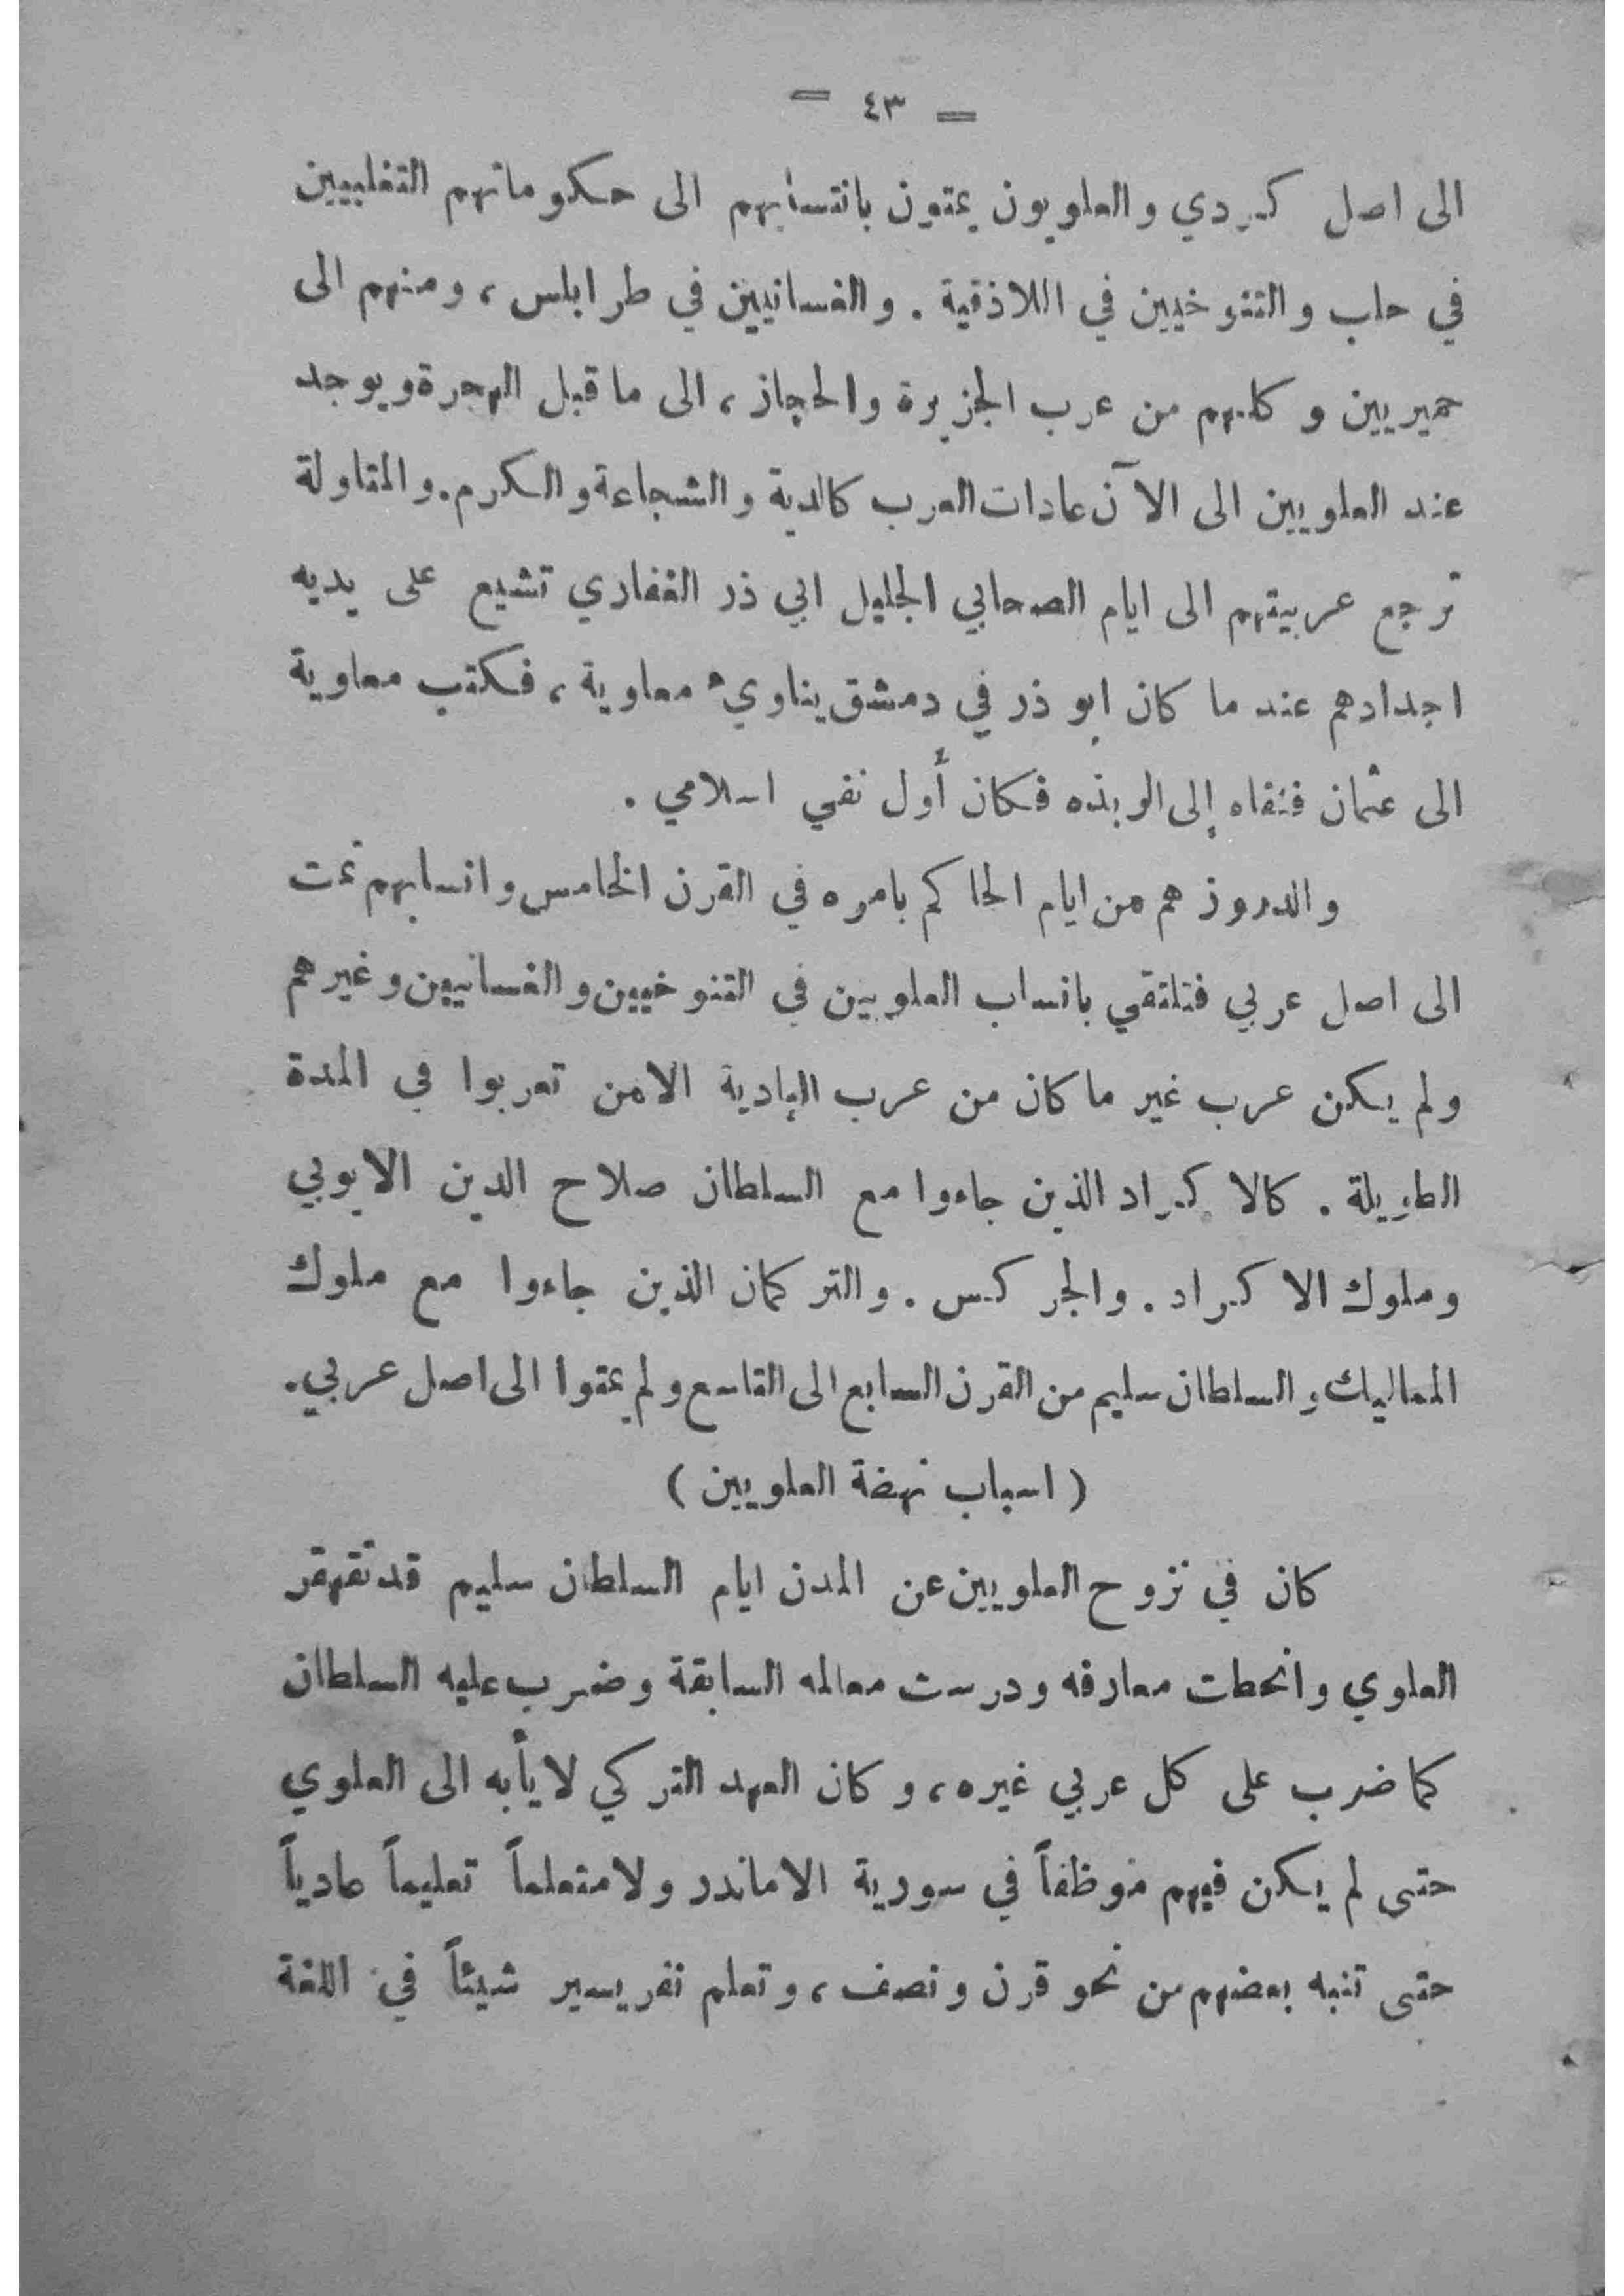 = ٤٣ =
الى اصل كردي والعلويون يمتون بانتسابهم الى حكوماتهم التغلبيين
في حلب والتنوخيين في اللاذقية . والغسانيين في طرابلس ، ومنهم الى
حميريين وكلهم من عرب الجزيرة والحجاز ، الى ما قبل الهجرة ويوجد
عند العلويين الى الآن عادات العرب كالدية والشجاعة والكرم . والمتاولة
ترجع عربيتهم الى ايام الصحابي الجليل ابي ذر الغفاري تشيع على يديه
اجدادهم عند ما كان ابو ذر في دمشق يناويء معاوية ، فكتب معاوية
الى عثمان فنفاه إلى الربذه فكان أول نفي اسلامي .
والدروز هم من ايام الحاكم بامره في القرن الخامس وانسابهم تمت
الى اصل عربي فتلتقي بانساب العلويين في التنوخيين والغسانيين وغيرهم
ولم يكن عرب غير ما كان من عرب البادية الامن تعربوا في المدة
الطويلة . كالاكراد الذين جاءوا مع السلطان صلاح الدين الايوبي
وملوك الاكراد . والجركس . والتركمان الذين جاءوا مع ملوك
المماليك والسلطان سليم من القرن السابع الى التاسع ولم يمتوا الى اصل عربي .
( اسباب نهضة العلويين )
كان في نزوح العلويين عن المدن ايام السلطان سليم قد تقهقر
العلوي وانحطت معارفه ودرست معالمه السابقة وضرب عليه السلطان
كما ضرب على كل عربي غيره ، وكان العهد التركي لا يأبه الى العلوي
حتى لم يكن فيهم موظفاً في سورية الاماندر ولا متعلماً تعليماً عادياً
حتى تنبه بعضهم من نحو قرن ونصف ، وتعلم نفر يسير شيئاً في اللغة